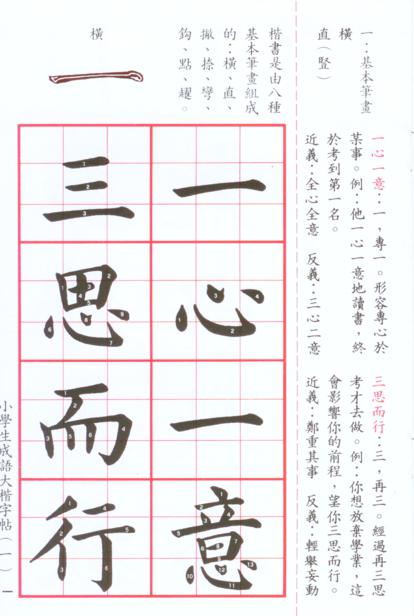 一：基本筆畫
橫
直（豎）
楷書是由八種
基本筆畫組成
的：橫、直、
撇、捺、彎、
鈎、點、趯。
橫
一
一心一意：一，專一。形容專心於
某事。例：他一心一意地讀書，終
於考到第一名。
近義：全心全意　反義：三心二意
三思而行：三，再三。經過再三思
考才去做。例：你想放棄學業，這
會影響你的前程，望你三思而行。
近義：鄭重其事　反義：輕舉妄動
一心一意
三思而行
小學生成語大楷字帖（一）　一